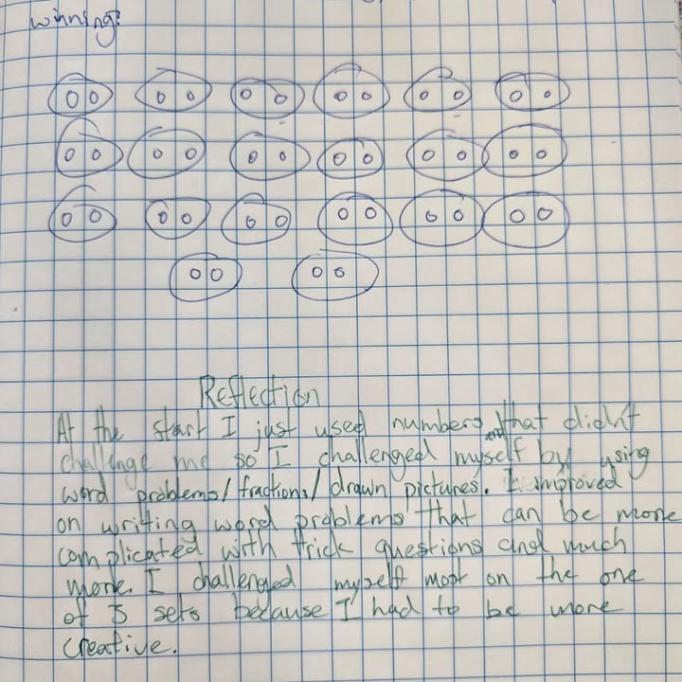 winning?
Reflection
At the start I just used numbers that didn't
challenge me so I and challenged myself by using
word problems/fractions/drawn pictures. I improved
on writing word problems that can be more
complicated with trick questions and much
more. I challenged myself most on the one
of 5 sets because I had to be more
creative.